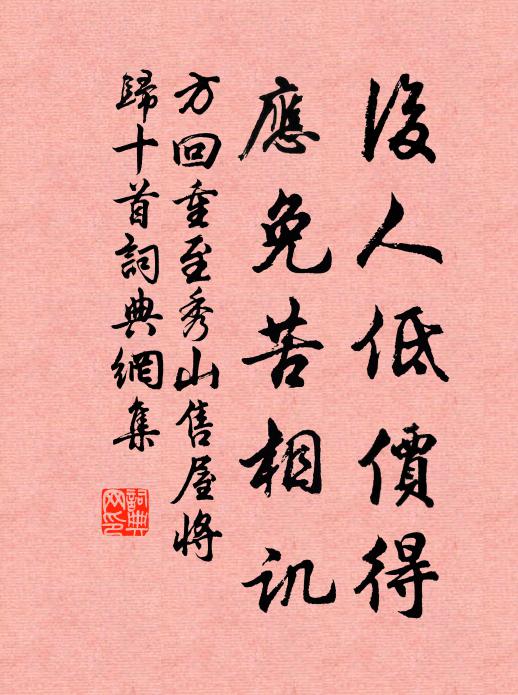 後人低價得
應免苦相訊
方回重至秀山售屋將
歸十首詞典網集
詞典
网印